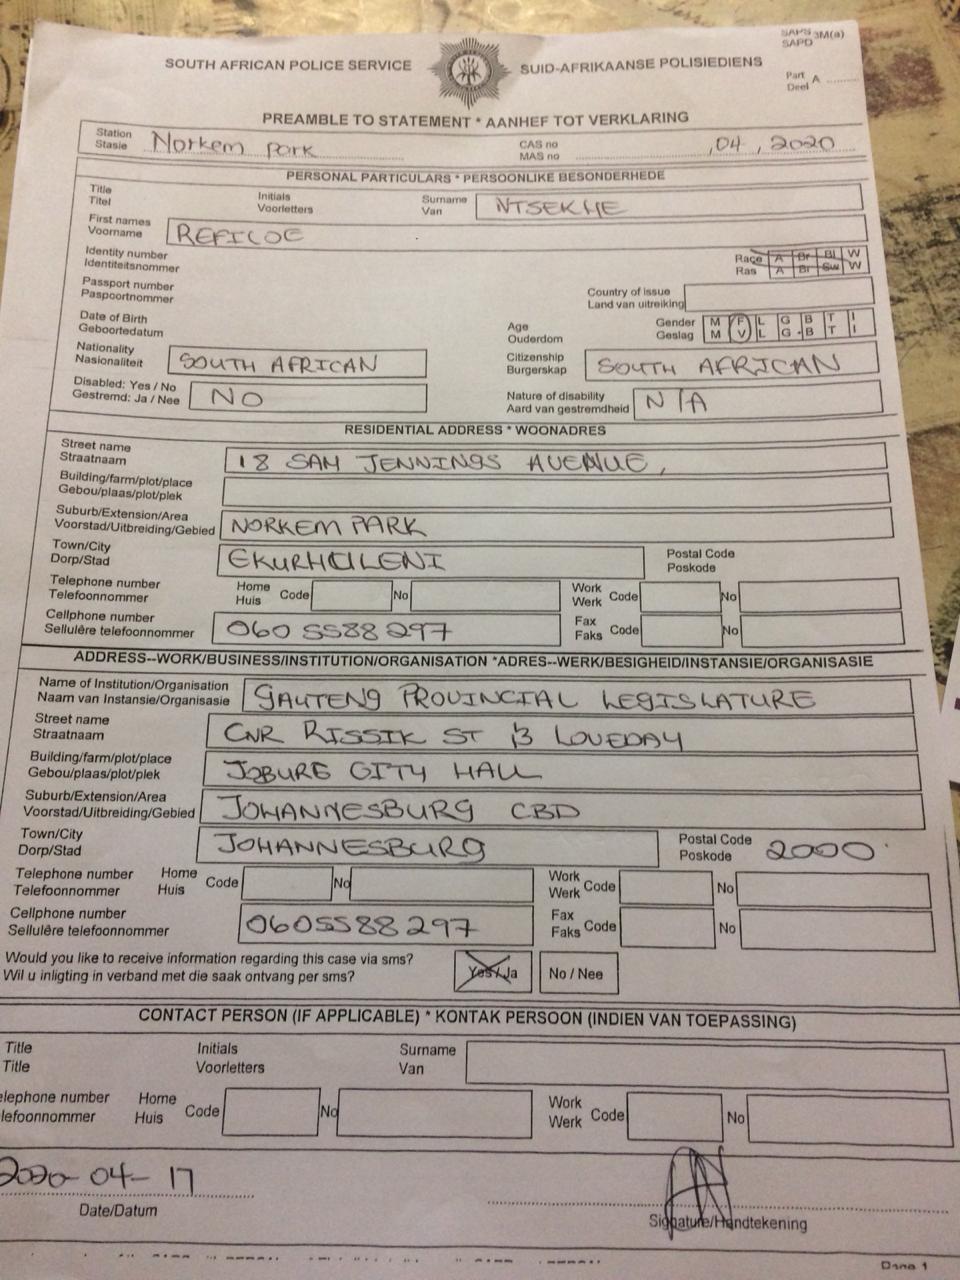 SAPS 3M(a)
SAPD
SOUTH AFRICAN POLICE SERVICE SUID-AFRIKAANSE POLISIEDIENS
Part A
Deel
PREAMBLE TO STATEMENT * AANHEF TOT VERKLARING
Station Norkem park CAS no ,04 , 2020
Stasie MAS no
PERSONAL PARTICULARS * PERSOONLIKE BESONDERHEDE
Title Initials Surname NTSEKHE
Titel Voorletters Van
First names REFILOE
Voorname
Identity number Race A Br Bl W
Identiteitsnommer Ras A Br Sw W
Passport number Country of issue
Paspoortnommer Land van uitreiking
Date of Birth Age Gender M F L G B T I
Geboortedatum Ouderdom Geslag M V L G B T I
Nationality SOUTH AFRICAN Citizenship SOUTH AFRICAN
Nasionaliteit Burgerskap
Disabled: Yes / No NO Nature of disability N/A
Gestremd: Ja / Nee Aard van gestremdheid
RESIDENTIAL ADDRESS * WOONADRES
Street name 18 SAM JENNINGS AVENUE,
Straatnaam
Building/farm/plot/place
Gebou/plaas/plot/plek
Suburb/Extension/Area NORKEM PARK
Voorstad/Uitbreiding/Gebied
Town/City EKURHULENI Postal Code
Dorp/Stad Poskode
Telephone number Home Code No Work Code No
Telefoonnommer Huis Werk
Cellphone number 060 5588 297 Fax Code No
Sellulêre telefoonnommer Faks
ADDRESS--WORK/BUSINESS/INSTITUTION/ORGANISATION *ADRES--WERK/BESIGHEID/INSTANSIE/ORGANISASIE
Name of Institution/Organisation GAUTENG PROVINCIAL LEGISLATURE
Naam van Instansie/Organisasie
Street name CNR RISSIK ST & LOVEDAY
Straatnaam
Building/farm/plot/place JOBURG CITY HALL
Gebou/plaas/plot/plek
Suburb/Extension/Area JOHANNESBURG CBD
Voorstad/Uitbreiding/Gebied
Town/City JOHANNESBURG Postal Code 2000
Dorp/Stad Poskode
Telephone number Home Code No Work Code No
Telefoonnommer Huis Werk
Cellphone number 0605588297 Fax Code No
Sellulêre telefoonnommer Faks
Would you like to receive information regarding this case via sms? Yes/Ja No / Nee
Wil u inligting in verband met die saak ontvang per sms?
CONTACT PERSON (IF APPLICABLE) * KONTAK PERSOON (INDIEN VAN TOEPASSING)
Title Initials Surname
Title Voorletters Van
elephone number Home Code No Work Code No
lefoonnommer Huis Werk
2020-04-17
Date/Datum Signature/Handtekening